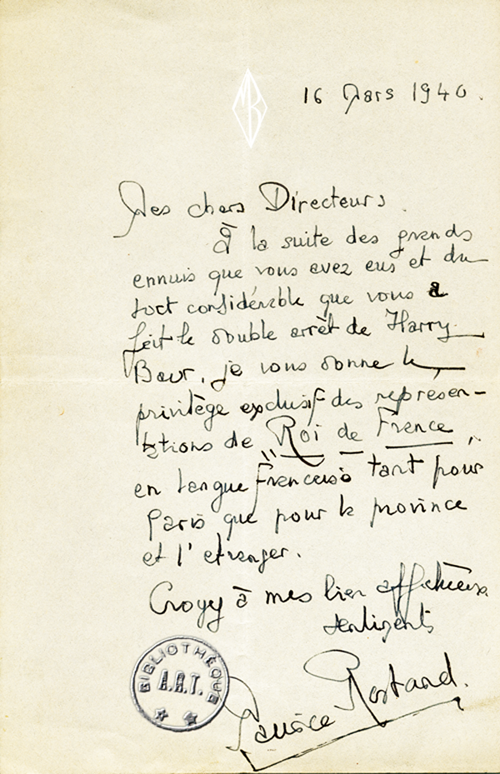 MR
16 Mars 1940.
Mes chers Directeurs
À la suite des grands
ennuis que vous avez eus et du
tort considérable que vous a
fait le double arrêt de Harry
Baur, je vous donne le
privilège exclusif des représen-
tations de "Roi de France",
en langue française tant pour
Paris que pour la province
et l'etranger.
Croyez à mes bien affectueux
sentiments
Maurice Rostand.
BIBLIOTHÈQUE
A.R.T.